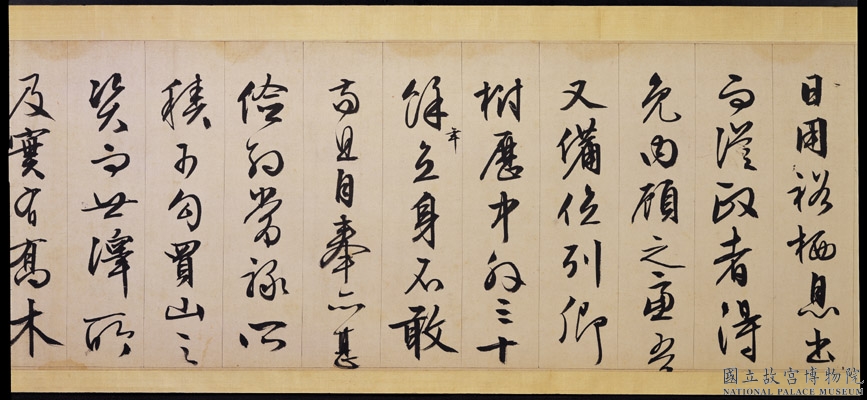 日用裕栖息出
而從政者得
免内顧之憂吾
又備位列卿
樹歷中外三十
餘年立身不敢
苟且自奉亦甚
儉約常祿所
積可勾買山之
資而世澤所
及實有喬木
國立故宮博物院
NATIONAL PALACE MUSEUM